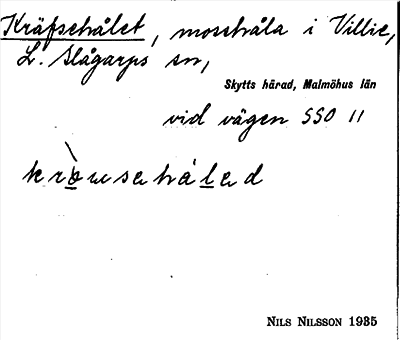 Kräfsehålet, mosshåla i Villie,
L. Slågarps sn,
Skytts härad, Malmöhus län
vid vägen SSO 11
NILS NILSSON 1935